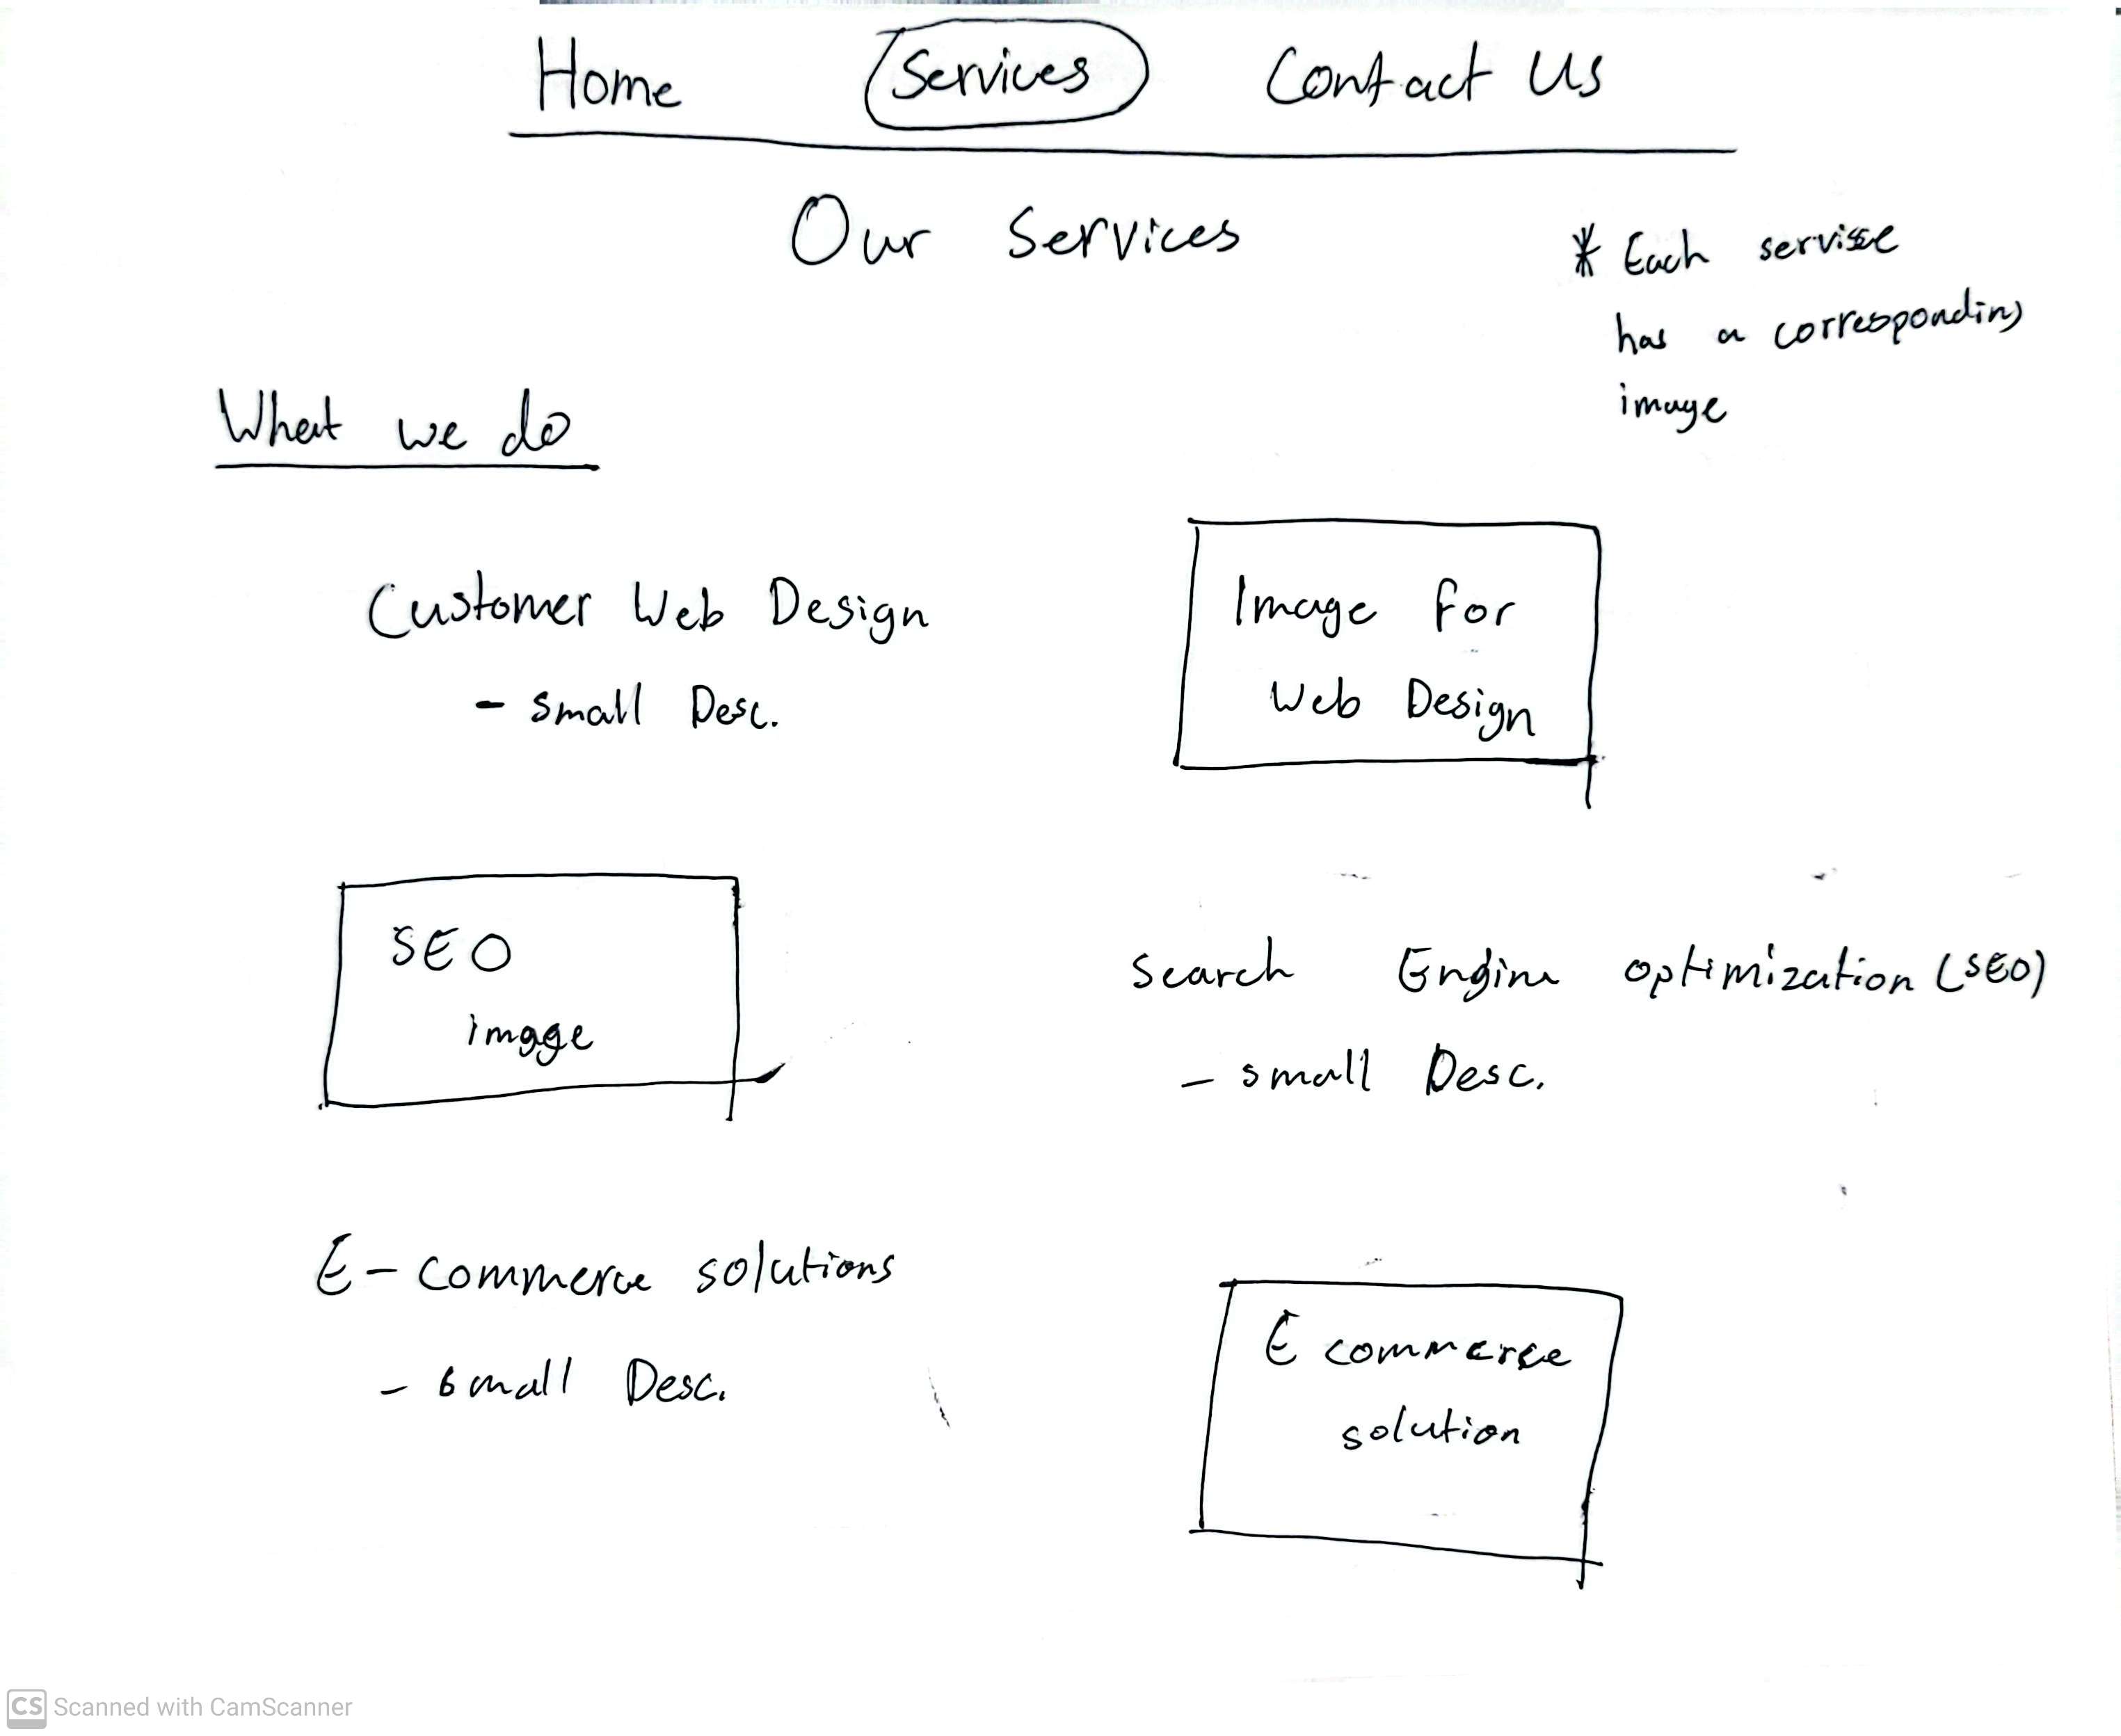 Home Services Contact Us
Our Services
* Each service
has a corresponding
image
What we do
Customer Web Design
- Small Desc.
Image For
Web Design
SEO
image
Search Engine optimization (SEO)
- small Desc.
E-commerce solutions
- small Desc.
E commerce
solution
CS Scanned with CamScanner